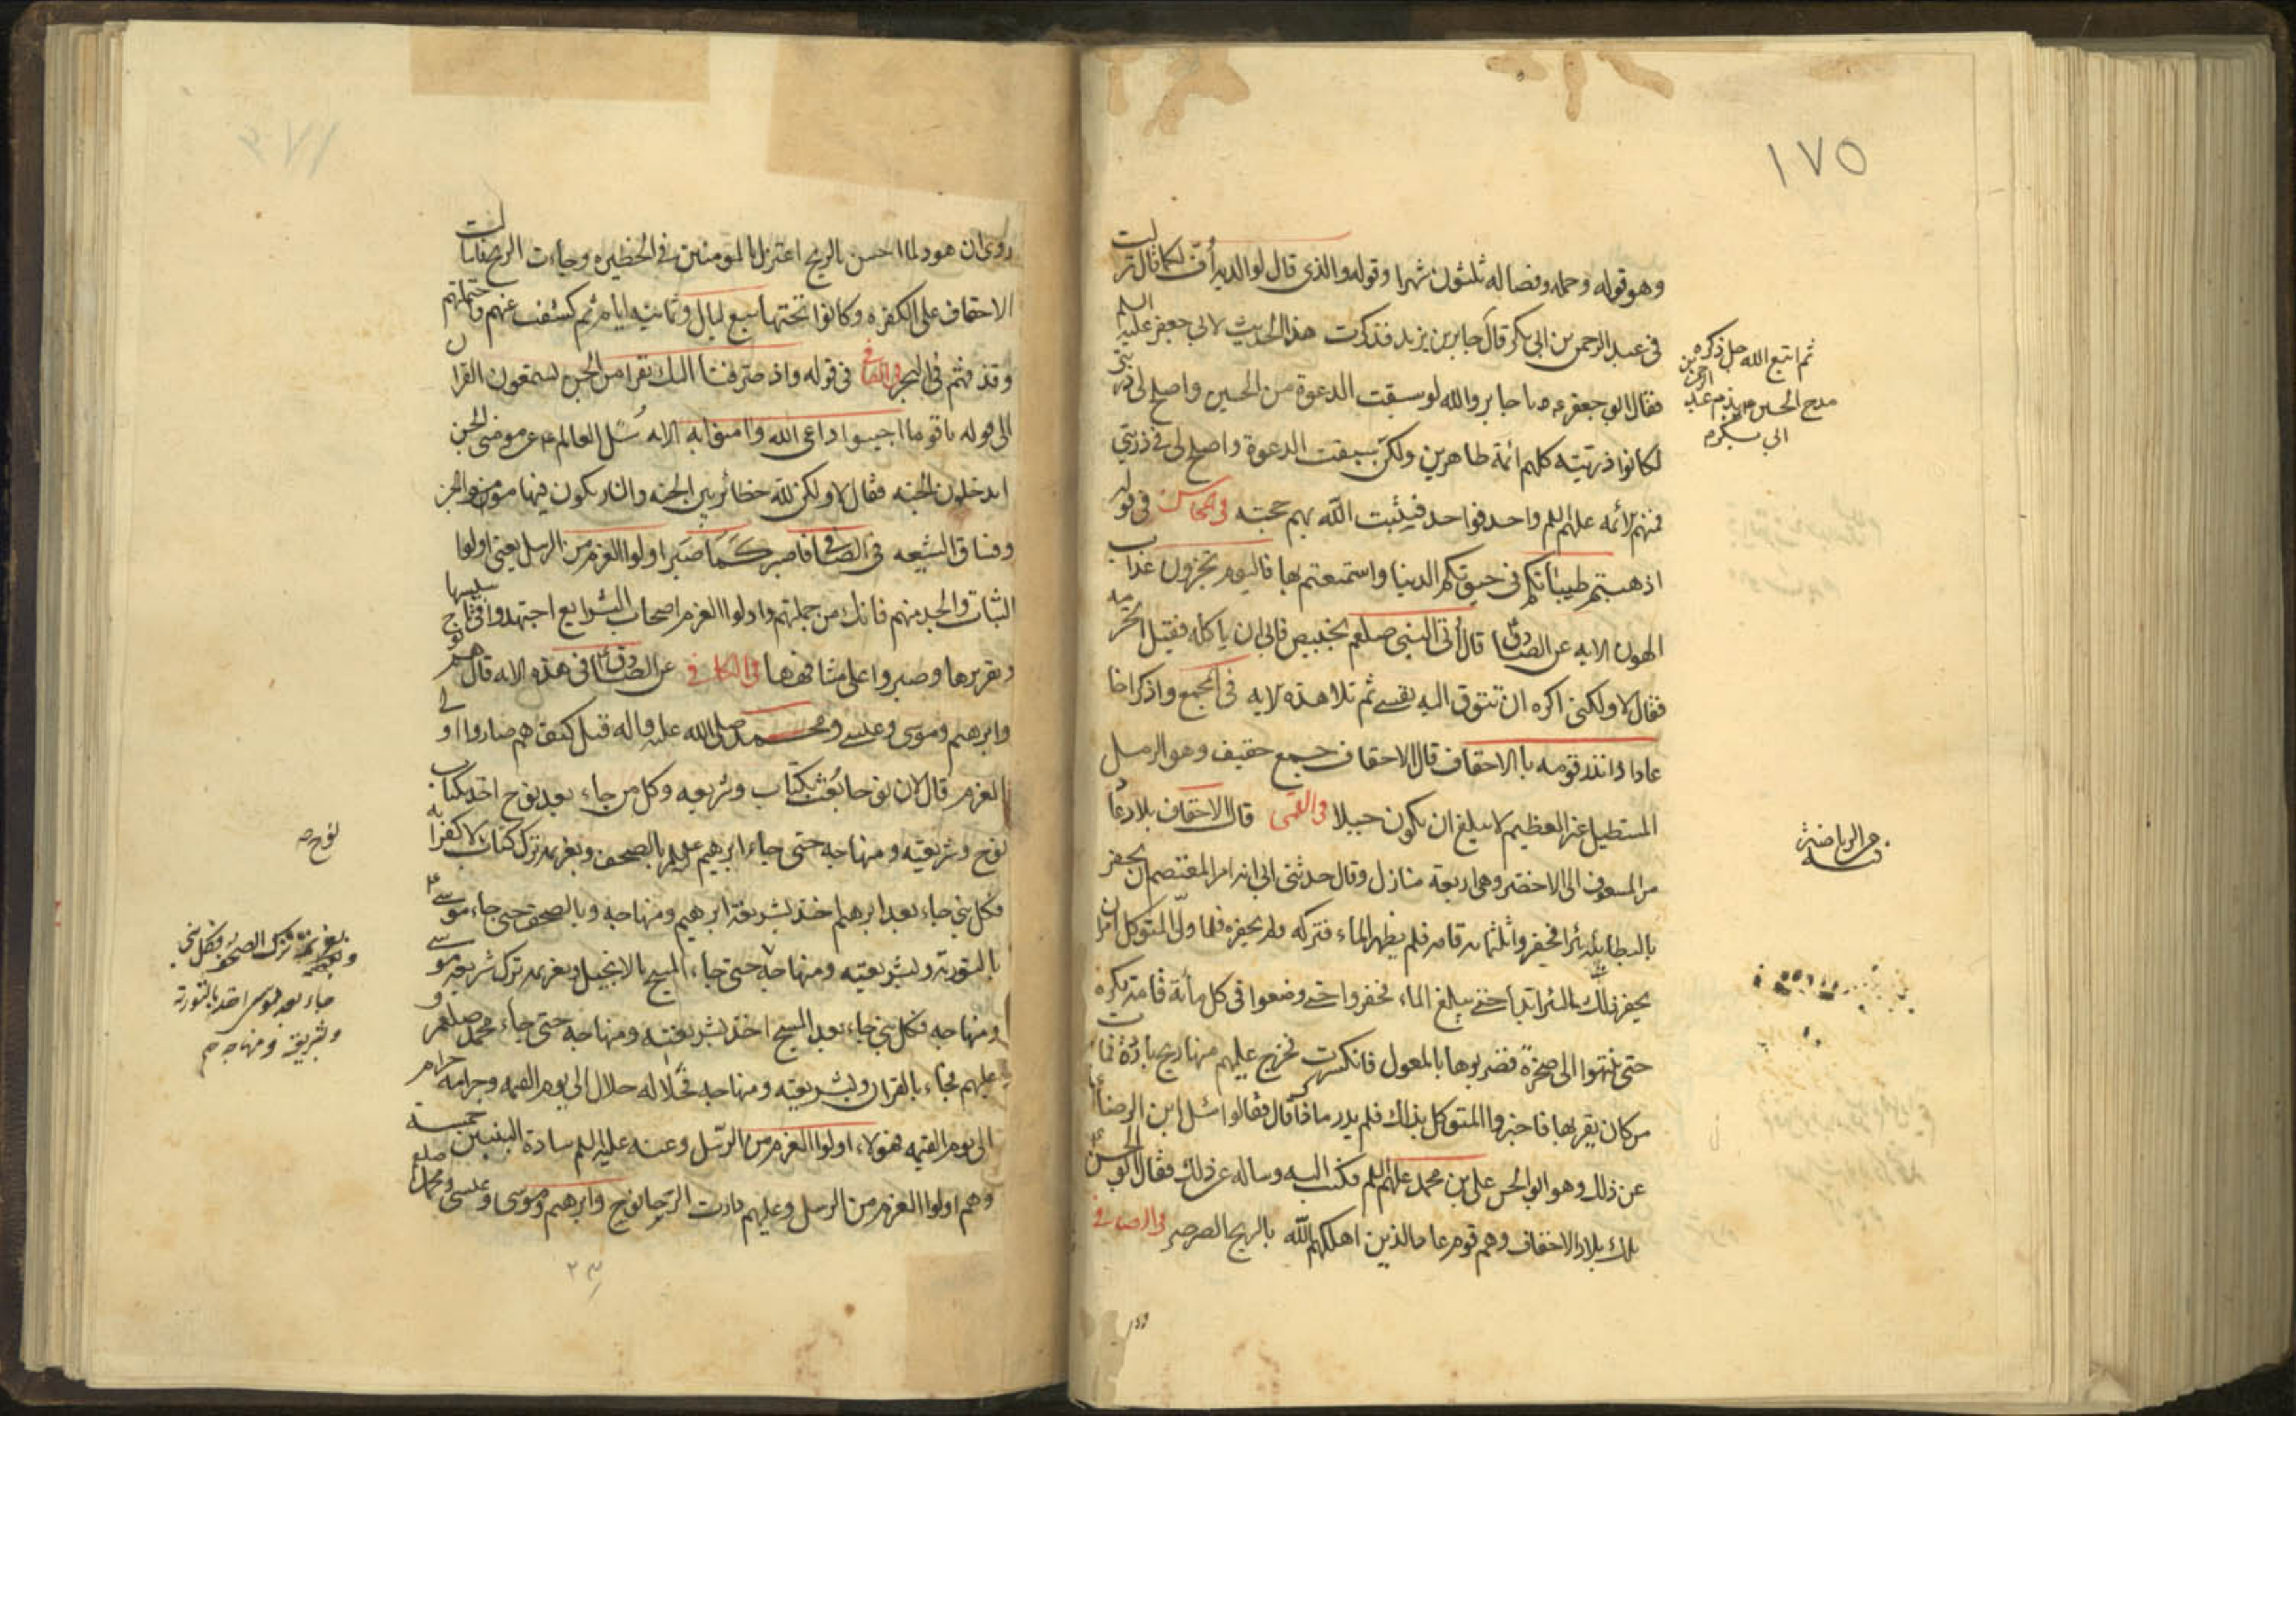 ١٧٥
وهو قوله وحمله وفصاله ثلثون شهرا وقوله والذى قال لوالديه أف لكما قال نزلت
فى عبد الرحمن بن ابى بكر قال جابر بن يزيد فذكرت هذا الحديث لابى جعفر عليه السلم
فقال ابو جعفر ع يا جابر والله لو سبقت الدعوة من الحسين واصلح لى ذريتى
لكانوا ذريته كلهم ائمة طاهرين ولكن سبقت الدعوة واصلح لى فى ذريتى
فمنهم الائمه عليهم السلم واحد فواحد فيثبت الله بهم حجته فى المحاسن فى قوله
اذهبتم طيباتكم فى حيوتكم الدنيا واستمتعتم بها فاليوم تجزون عذاب
الهون الايه عن الصادق ع قال أتى النبى صلعم بخبيص فابى ان ياكله فقيل اتحرمه
فقال لا ولكنى اكره ان تتوق اليه نفسى ثم تلا هذه الايه فى المجمع واذكر اخا
عاد اذ انذر قومه بالاحقاف قال الاحقاف جمع حقف وهو الرمل
المستطيل العظيم لا يبلغ ان يكون جبلا فى القمى قال الاحقاف بلاد عاد
من الشقوق الى الاجفر وهى اربعة منازل وقال حدثنى ابى انه امر المعتصم ان يحفر
بالبطانيه بئرا فحفروا ثلثمائه قامه فلم يظهر الماء فتركه ولم يحفره فلما ولى المتوكل امر ان
يحفر ذلك البئر ابدا حتى يبلغ الماء فحفروا حتى وضعوا فى كل مأية قامة بكره
حتى انتهوا الى صخرة فضربوها بالمعول فانكسرت فخرج عليهم منها ريح باردة فمات
من كان بقربها فاخبروا المتوكل بذلك فلم يدر ما ذاك فقالوا سئل ابن الرضا ع
عن ذلك وهو ابو الحسن على بن محمد عليهم السلم فكتب اليه وساله عن ذلك فقال ابو الحسن ع
تلك بلاد الاحقاف وهم قوم عاد الذين اهلكهم الله بالريح الصرصر فى الصافى
ثم اتبع الله جل ذكره
مدح الحسين ع بذم عبد الرحمن بن
ابى بكر م
فى الرياضة
روى ان هود لما احس بالريح اعتزل بالمومنين فى الحظيره وجاءت الريح فامالت
الاحقاف على الكفره وكانوا تحتها سبع ليال وثمانيه ايام ثم كشفت عنهم واحتملتهم
وقذفتهم فى البحر فى الصافى فى قوله واذ صرفنا اليك نفرا من الجن يستمعون القران
الى قوله يا قومنا اجيبوا داعى الله وامنوا به الايه سُئل العالم ع عن مومنى الجن
ايدخلون الجنه فقال لا ولكن لله حظائر بين الجنه والنار يكون فيها مومنوا الجن
وفساق الشيعه فى الصافى فاصبر كما صبر اولوا العزم من الرسل يعنى اولوا
الثبات والجد منهم فانك من جملتهم واولوا العزم اصحاب الشرايع اجتهدوا فى تاسيسها
وتقريرها وصبروا على مشاقها فى الكافى عن الصادق ع فى هذه الايه قال هم نوح
وابرهيم وموسى وعيسى ومحمد صلى الله عليه واله قيل كيف هم صاروا اولى
العزم قال لان نوحا بُعث بكتاب وشريعه وكل من جاء بعد نوح اخذ بكتاب
نوح وشريعته ومنهاجه حتى جاء ابرهيم ع بالصحف وبعزيمه ترك كتاب لا كفرا به
فكل نبى جاء بعد ابرهيم اخذ بشريعة ابرهيم ومنهاجه وبالصحف حتى جاء موسى ع
بالتوريه وبشريعته ومنهاجه حتى جاء المسيح بالانجيل وبعزيمه ترك شريعه موسى
ومنهاجه فكل نبى جاء بعد المسيح اخذ بشريعته ومنهاجه حتى جاء محمد صلعم و
عليهم فجاء بالقران وبشريعته ومنهاجه فحلاله حلال الى يوم القيمه وحرامه حرام
الى يوم القيمه فهولاء اولوا العزم من الرسل وعنه عليه السلم سادة النبيين خمسة
وهم اولوا العزم من الرسل وعليهم دارت الرحا نوح وابرهيم وموسى وعيسى ومحمد صلعم
نوح ص
وبعزيمة ترك الصحف فكل نبى
جاء بعد موسى اخذ بالتورية
وشريعته ومنهاجه م